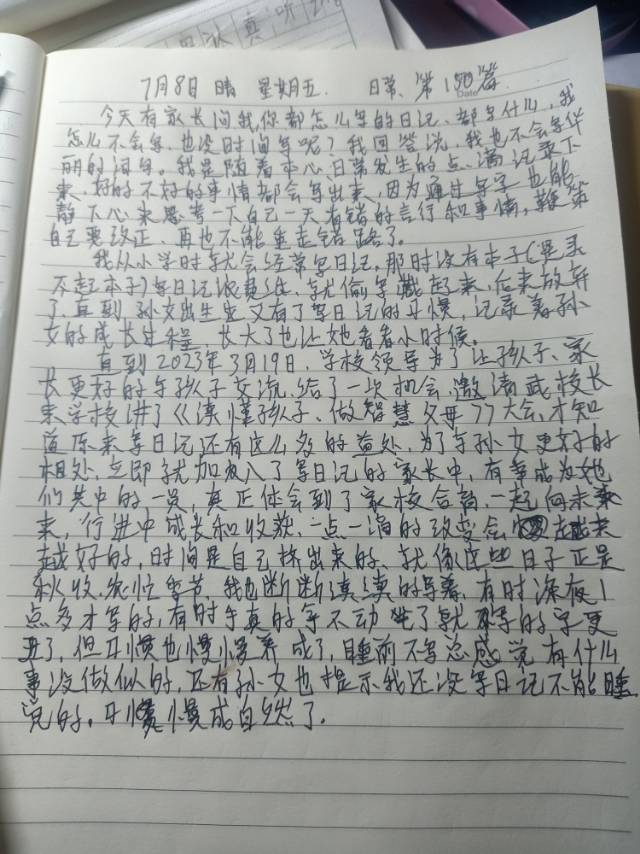 7月8日 晴 星期五 日常、第150篇
Date
今天有家长问我,你都怎么写的日记、都写什么,我
怎么不会写,也没时间写呢?我回答说,我也不会写华
丽的词句。我是随着本心日常发生的点、滴记录下
来,好的不好的事情都会写出来,因为通过写字也能
静下心来思考一下自己一天有错的言行和事情,鞭策
自己要改正、再也不能重走错路了。
我从小学时就会经常写日记,那时没有本子(是买
不起本子)写日记浪费纸、就偷写藏起来,后来放弃
了,直到孙女出生又有了写日记的习惯,记录着孙
女的成长过程,长大了也让她看看小时候。
直到2023年3月19日、学校领导为了让孩子、家
长更好的与孩子交流、给了一次机会,邀请武校长
来学校讲了《读懂孩子、做智慧父母》大会,才知
道原来写日记还有这么多的益处,为了与孙女更好的
相处、立即就加入了写日记的家长中,有幸成为她
们其中的一员,真正体会到了家校合育,一起向未来
来,行进中成长和收获、一点一滴的改变会越来
越好的,时间是自己挤出来的、就像这些日子正是
秋收、农忙季节、我也断断续续的写着,有时深夜1
点多才写的,有时手真的写不动了就写的字更
丑了,但习惯也慢慢养成了,睡前不写总感觉有什么
事没做似的,还有孙女也提示我还没写日记不能睡
觉的。习惯成自然了.